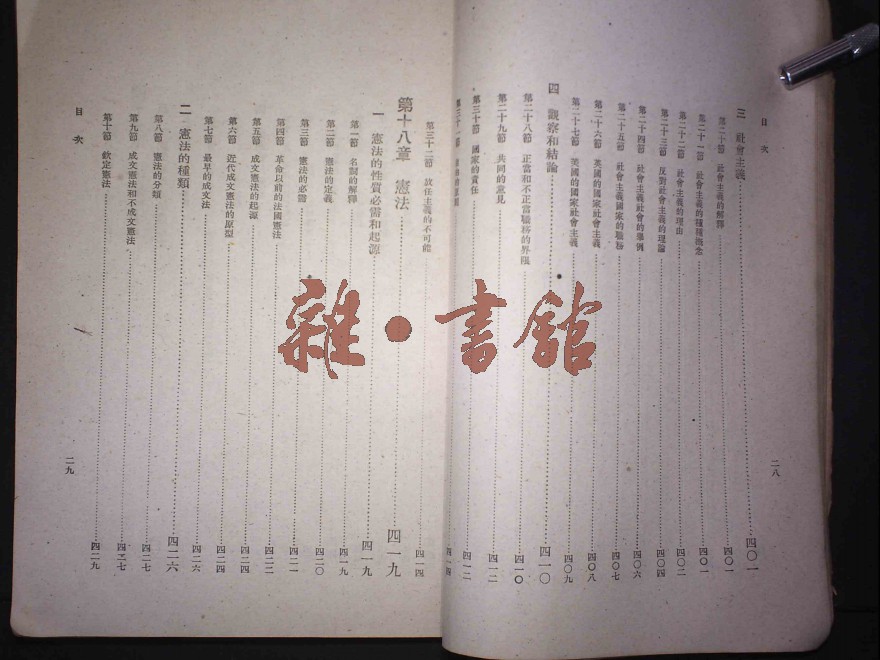 目次
三 社會主義 四〇一
第二十節 社會主義的解釋 四〇一
第二十一節 社會主義的種種概念 四〇一
第二十二節 社會主義的理由 四〇二
第二十三節 反對社會主義的理論 四〇四
第二十四節 社會主義社會的舉例 四〇六
第二十五節 社會主義國家的職務 四〇七
第二十六節 英國的國家社會主義 四〇八
第二十七節 英國的國家社會主義 四〇九
四 觀察和結論 四一〇
第二十八節 正當和不正當職務的界限 四一〇
第二十九節 共同的意見 四一二
第三十節 國家的責任 四一二
第三十一節
二八
第三十二節 放任主義的不可能 四一四
第十八章 憲法 四一九
一 憲法的性質必需和起源 四一九
第一節 名詞的解釋 四一九
第二節 憲法的定義 四二〇
第三節 憲法的必需 四二一
第四節 革命以前的法國憲法 四二二
第五節 成文憲法的起源 四二四
第六節 近代成文憲法的原型 四二四
第七節 最早的成文法 四二六
二 憲法的種類 四二六
第八節 憲法的分類 四二七
第九節 成文憲法和不成文憲法 四二七
第十節 欽定憲法 四二九
目次
二九
雜·書館